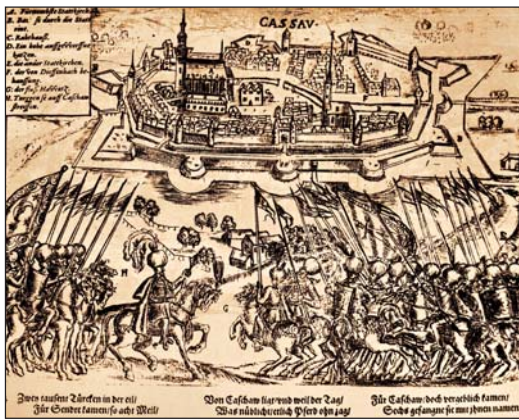 CASSAV.
A. Fürnembste Stattkirch
B. Bach so durch die Statt
rint.
C. Rahthauß.
D. Ein hohe auffgeworffne
katzen.
E. die ander Stattkirchen.
F. der von Dieffenbach be
G. der fluß
H. Turggen so auff Caschaw
Zwey tausent Türcken in der eil/
Für Sendre kamen/so acht Meil/
Von Caschaw ligt/vnd weil der Tag/
Was nüblicht/etlich Pferd ohn sag/
Für Caschaw/doch vergeblich kamen/
Sechs gefangne sie mit ihnen namen
H
G